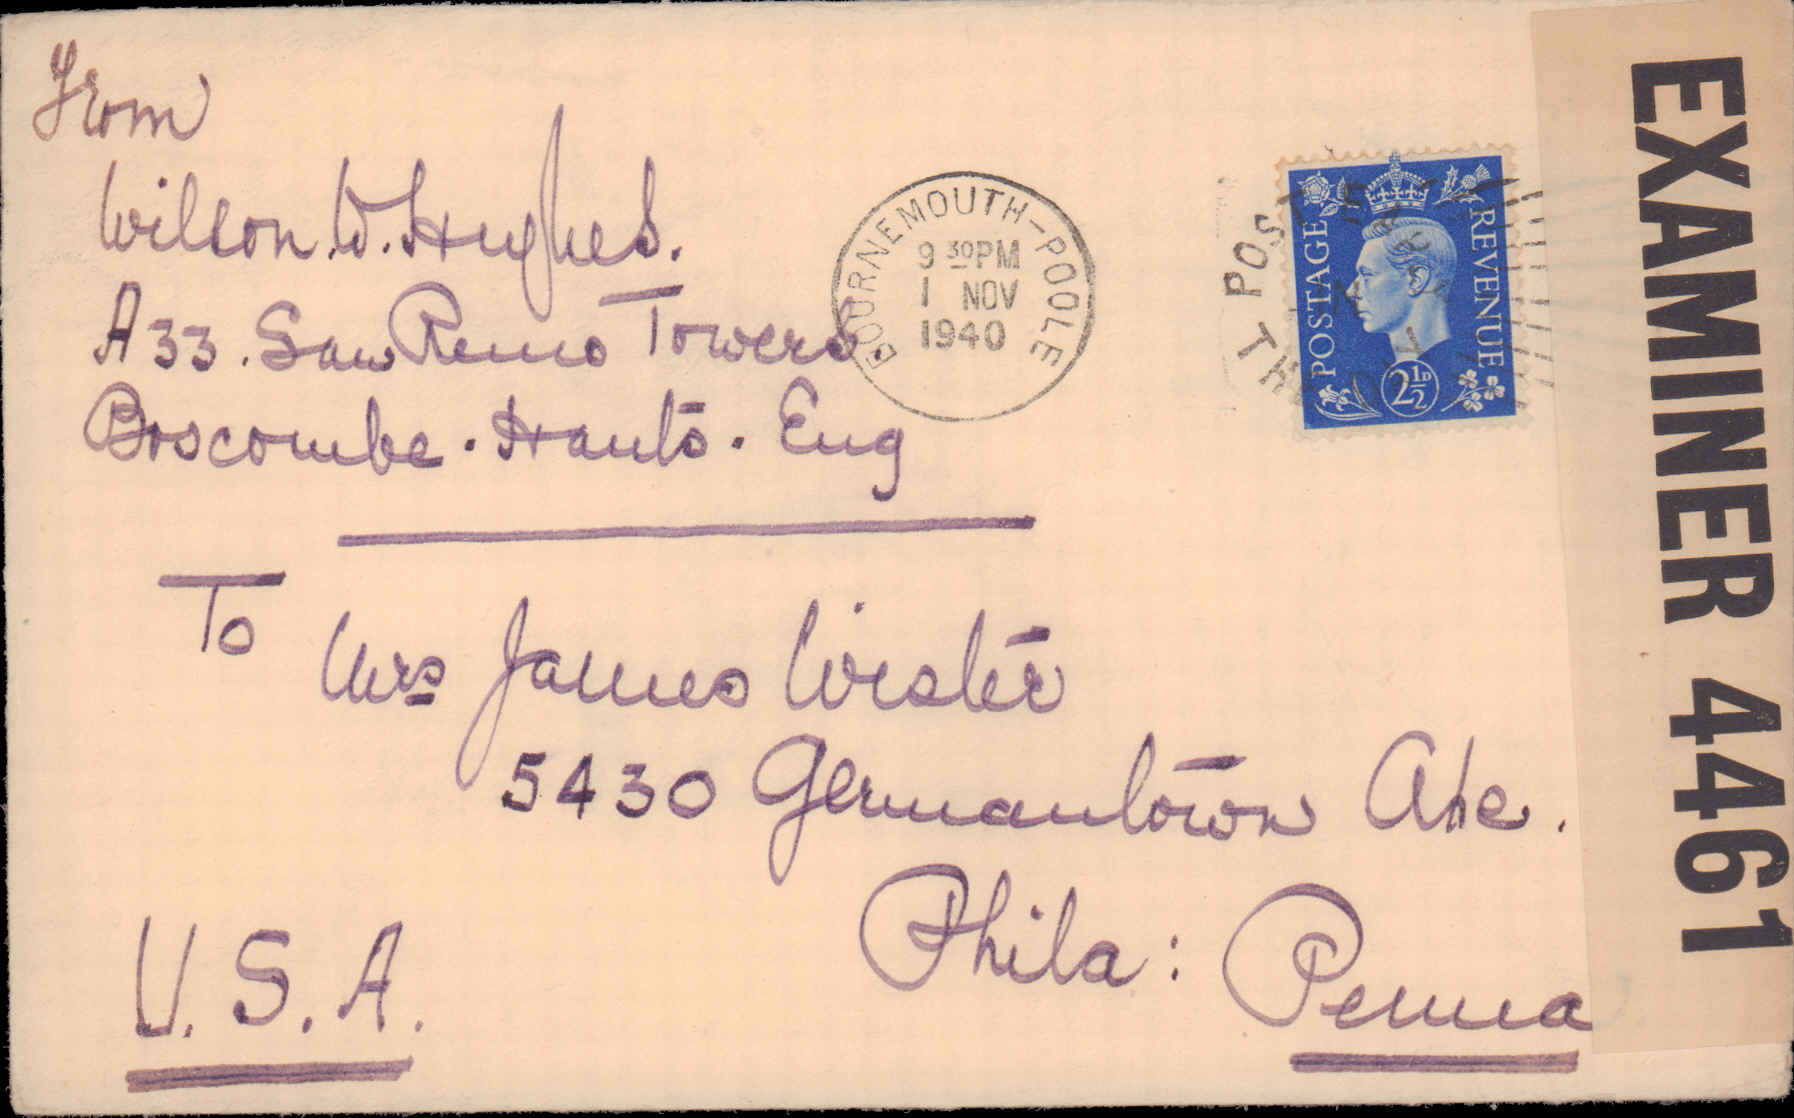 From
Wilson W. Hughes.
A33. San Remo Towers.
Boscombe. Hants. Eng
BOURNEMOUTH-POOLE
9 30PM
1 NOV
1940
POST
TH
POSTAGE
REVENUE
2½D
To
Mrs James Wister
5430 Germantown Ave.
Phila: Penna
U.S.A.
EXAMINER 4461